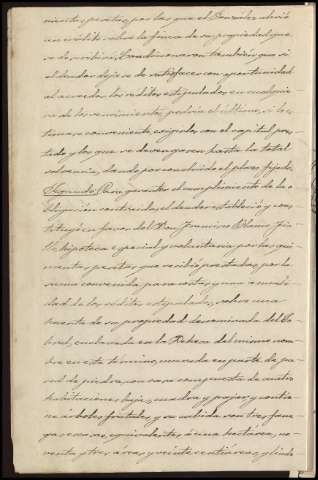 nientas pesetas, por las que el González abrió
un crédito sobre la finca de su propiedad que
se describirá. Convinieron también que si
el deudor dejara de satisfacer con oportunidad
al acreedor los réditos estipulados en cualquie-
ra de los vencimientos, podría el último, si lo es-
timara conveniente exigirlos con el capital pres-
tado y los que se devengaren hasta la total
solvencia, dando por concluido el plazo fijado.
Segundo. Para garantir el cumplimiento de la o-
bligación contraída, el deudor estableció y cons-
tituyó a favor del Don Francisco
hipoteca especial y voluntaria por las qui-
nientas pesetas que recibió prestadas, por la
suma convenida para costas y una anuali-
dad de los réditos estipulados, sobre una
huerta de su propiedad denominada del
enclavada en la Ribera del mismo nom-
bre en este término, cercada en parte de pa-
red de piedra, con casa compuesta de cuatro
habitaciones bajas, cuadra y pajar y contie-
ne árboles frutales, y su cabida son tres fane-
gas cesaraugustanas
venta y tres áreas y veinte centiáreas, y linda